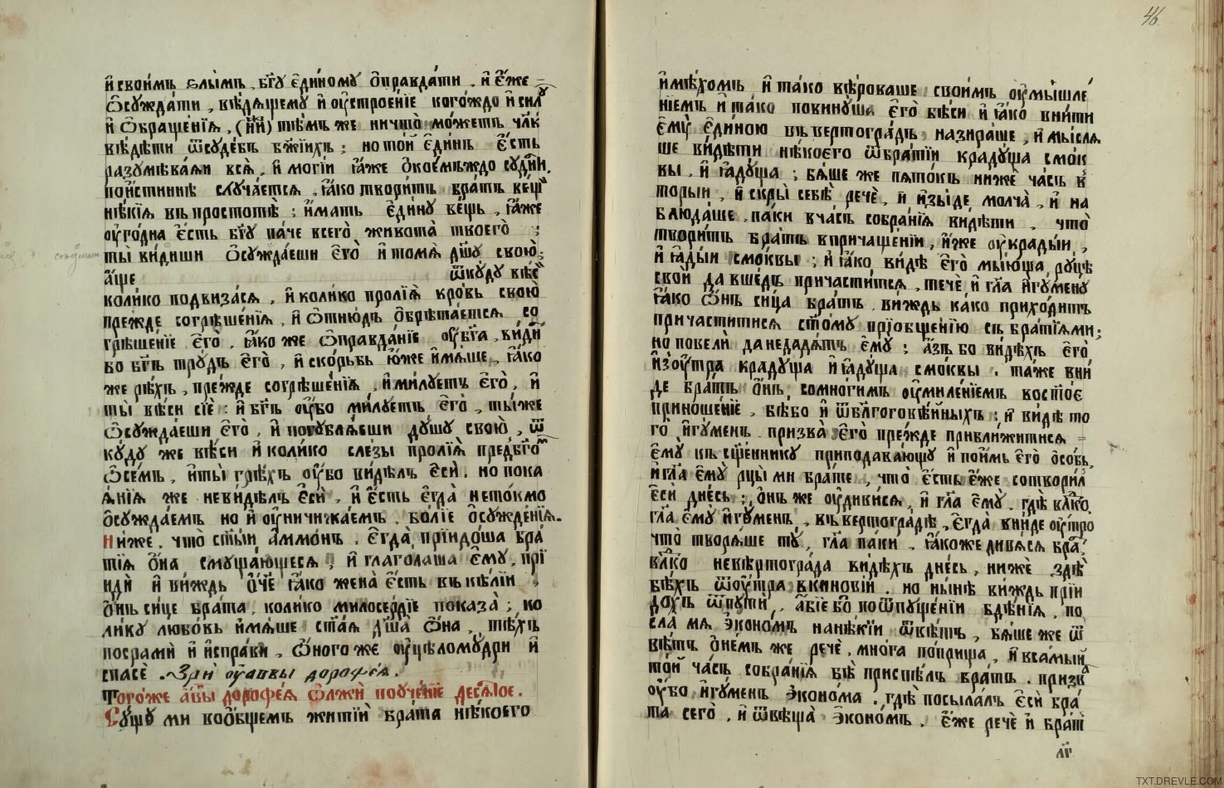 и҆ свои́мъ ѕлы́мъ, бг҃ꙋ є҆ди́номꙋ ѻ҆правда́ти, и҆ є҆́же
ѽсꙋжда́ти, вѣ́дѧщемꙋ и҆ ᲂу҆строе́нїе когѡ́ждо и҆ си́лꙋ
и҆ ѽбраще́нїѧ, (и҆ни́) тѣ́мъ же ничто̀ мо́жетъ чл҃къ
вѣ́дѣти ѿ сꙋде́бъ бж҃їихъ; но то́й є҆ди́нъ є҆́сть
разꙋмѣва́ѧи всѧ̀, и҆ моги́и ꙗ҆́же ѻ҆коемъждо сꙋди́ти.
пои́стиннѣ слꙋча́етсѧ, ꙗ҆́ко твори́тъ бра́тъ ве́щь
нѣ́кїѧ въ простотѣ̀; и҆́мать є҆ди́нꙋ ве́щь, ꙗ҆́же
ᲂу҆го́дна є҆́сть бг҃ꙋ па́че всегѡ̀ живота̀ твоегѡ̀;
ты̀ ви́диши ѻ҆сꙋжда́еши є҆го̀ и҆ томѧ̀ дш҃ꙋ свою̀;
а҆́ще ѿкꙋ́дꙋ вѣ́си
коли́ко подвиза́сѧ, и҆ коли́ко пролїѧ̀ кро́вь свою̀
пре́жде согрѣше́нїѧ, и҆ ѽтню́дъ ѻ҆брѣта́етсѧ со
грѣше́нїе є҆гѡ̀, ꙗ҆́ко же ѽправда́нїе ᲂу҆ бг҃а, ви́ди
бо бг҃ъ трꙋ́дъ є҆гѡ̀, и҆ ско́рьбь ю҆́же и҆мѧ́ше, ꙗ҆́ко
же рѣ́хъ, пре́жде согрѣше́нїѧ, и҆ ми́лꙋетъ є҆го̀, и҆
ты̀ вѣ́си сїѐ: и҆ бг҃ъ ᲂу҆́бо ми́лꙋетъ є҆го̀, ты́ же
ѽсꙋжда́еши є҆го̀, и҆ погꙋблѧ́еши дꙋ́шꙋ свою̀, ѿ
кꙋ́дꙋ же вѣ́си и҆ коли́ко сле́зы пролїѧ̀ пред̾ бг҃омъ
ѽ се́мъ, и҆ ты̀ грѣ́хъ ᲂу҆́бо ви́дѣлъ є҆сѝ. но пока
ѧ́нїѧ же не ви́дѣлъ є҆сѝ, и҆ є҆́сть є҆гда̀ не то́кмо
ѻ҆сꙋжда́емъ но и҆ ᲂу҆ничижа́емъ. бо́лїе ѻ҆сꙋжде́нїѧ.
Ни́же. что̀ ст҃ы́и а҆ммо́нъ. є҆гда̀ прїидо́ша бра
тїѧ ѻ҆́на смꙋща́ющесѧ, и҆ глаго́лаша є҆мꙋ̀, прї
идѝ и҆ ви́ждь ѻ҆́ч҃е ꙗ҆́ко жена̀ є҆́сть въ кѣ́лїи
ѻ҆́нъ си́це бра́та, коли́ко милосе́рдїе показа̀; ко
ли́кꙋ любо́вь и҆мѧ́ше ст҃а́ѧ дш҃а̀ ѽна, тѣ́хъ
посрамѝ и҆ и҆спра́ви, ѽного же ᲂу҆цѣломꙋ́дри и҆
спасѐ. Зрѝ ᲂу҆ аввы дорофеѧ.
Тогѡ́же а҆́в҃ы дорофе́ѧ ѽ лжѝ поꙋче́нїе десѧ́тое.
Сꙋ́щꙋ ми во ѻ҆́бщемъ житїѝ бра́та нѣ́коего
46
и҆мѣ́хомъ и҆ та́ко вѣ́роваше свои́мъ ᲂу҆мышле́
нїемъ и҆ та́ко покинꙋ́ша є҆го̀ бѣ́си и҆ ꙗ҆́ко вни́ти
є҆мꙋ̀ є҆ди́ною въ вертогра́дъ назира́ше, и҆ мы́слѧ
ше ви́дѣти нѣ́коего ѿ бра́тїи кра́дꙋща смо́к
вы, и҆ ꙗ҆дꙋ́ща; бѧ́ше же пѧто́къ ни́же ча́съ в
торы́и, и҆ скры̀ себѣ̀ речѐ, и҆ и҆зы́де молча̀, и҆ на
блюда́ше, па́ки в ча́съ собра́нїѧ ви́дѣти, что̀
твори́тъ бра́тъ в причаще́нїи, и҆́же ᲂу҆кра́дыи,
и҆ ꙗ҆ды́и смо́квы; и҆ ꙗ҆́ко ви́дѣ є҆го̀ мы́юща рꙋ́цѣ
свои̑ да вше́дъ причасти́тсѧ, течѐ, и҆ гл҃а и҆гꙋ́менꙋ
ꙗ҆́ко ѽнъ си́ца бра́тъ. ви́ждь ка́ко прихо́дитъ
причасти́тисѧ ст҃о́мꙋ прїѻбще́нїю съ бра́тїѧми;
но повелѝ да не дадѧ́тъ є҆мꙋ̀; а҆́зъ бо ви́дѣхъ є҆го̀
и҆з̾ ᲂу҆́тра кра́дꙋща и҆ ꙗ҆дꙋ́ща смо́квы. та́же вни́
де бра́тъ ѻ҆́нъ, со мно́гимъ ᲂу҆миле́нїемъ во ст҃о́е
приноше́нїе, бѣ́ бо и҆ ѿ бл҃гоговѣ́нныхъ; и҆ ви́дѣ то
го̀ и҆гꙋ́менъ. призва̀ є҆го̀ пре́жде прибли́житисѧ
є҆мꙋ̀ къ сщ҃е́нникꙋ приподава́ющꙋ и҆ пои́мъ є҆го̀ ѻ҆со́бь,
и҆ гл҃а є҆мꙋ̀ рцы́ ми бра́те, что̀ є҆́сть є҆́же сотвори́л
є҆сѝ дне́сь; ѻ҆́нъ же ᲂу҆диви́сѧ, и҆ гл҃а є҆мꙋ̀. гдѣ̀ влⷣко
гл҃а є҆мꙋ̀ и҆гꙋ́менъ, въ вертогра́дѣ, є҆гда̀ вни́де ᲂу҆́тро
что̀ творѧ́ше тꙋ̀, гл҃а па́ки. ꙗ҆́коже дивѧ́сѧ бра́тъ
влⷣко не вѣртогра́да ви́дѣхъ дне́сь, ни́же здѣ̀
бѣ́хъ ѿ ᲂу҆́тра в кино́вїи. но ны́нѣ ви́ждь прїи
до́хъ ѿ пꙋтѝ, а҆́бїе бо по ѿпꙋще́нїи бдѣ́нїѧ, по
сла́ мѧ э҆коно́мъ на нѣ́кїи ѿвѣ́тъ, бѧ́ше же ѿ
вѣ́тъ ѻ҆не́мъ же речѐ, мно́га по́прища, и҆ в са́мыи
то́й ча́съ собра́нїѧ бѣ̀ приспѣ́лъ бра́тъ. призва
ᲂу҆́бо и҆гꙋ́менъ э҆коно́ма. гдѣ̀ посыла́лъ є҆сѝ бра
та сегѡ̀, и҆ ѿвѣща̀ э҆коно́мъ. є҆́же речѐ и҆ бра́тъ
TXT.DREVLE.COM